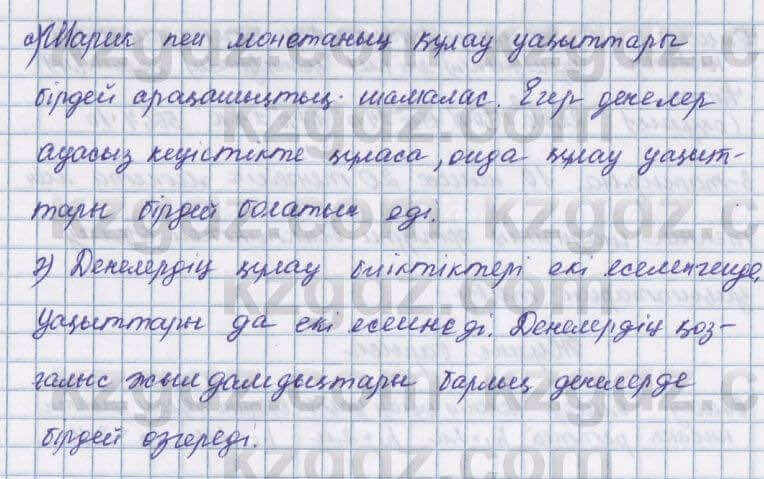 а) Шарик пен монетаның құлау уақыттары
бірдей арақашықтық шамалас. Егер денелер
ауасыз кеңістікте құласа, онда құлау уақыт-
тары бірдей болатын еді.
г) Денелердің құлау биіктіктері екі еселенгенде,
уақыттары да екі еселенеді. Денелердің қоз-
ғалыс жылдамдықтары барлық денелерде
бірдей өзгереді.
kzgdz.com